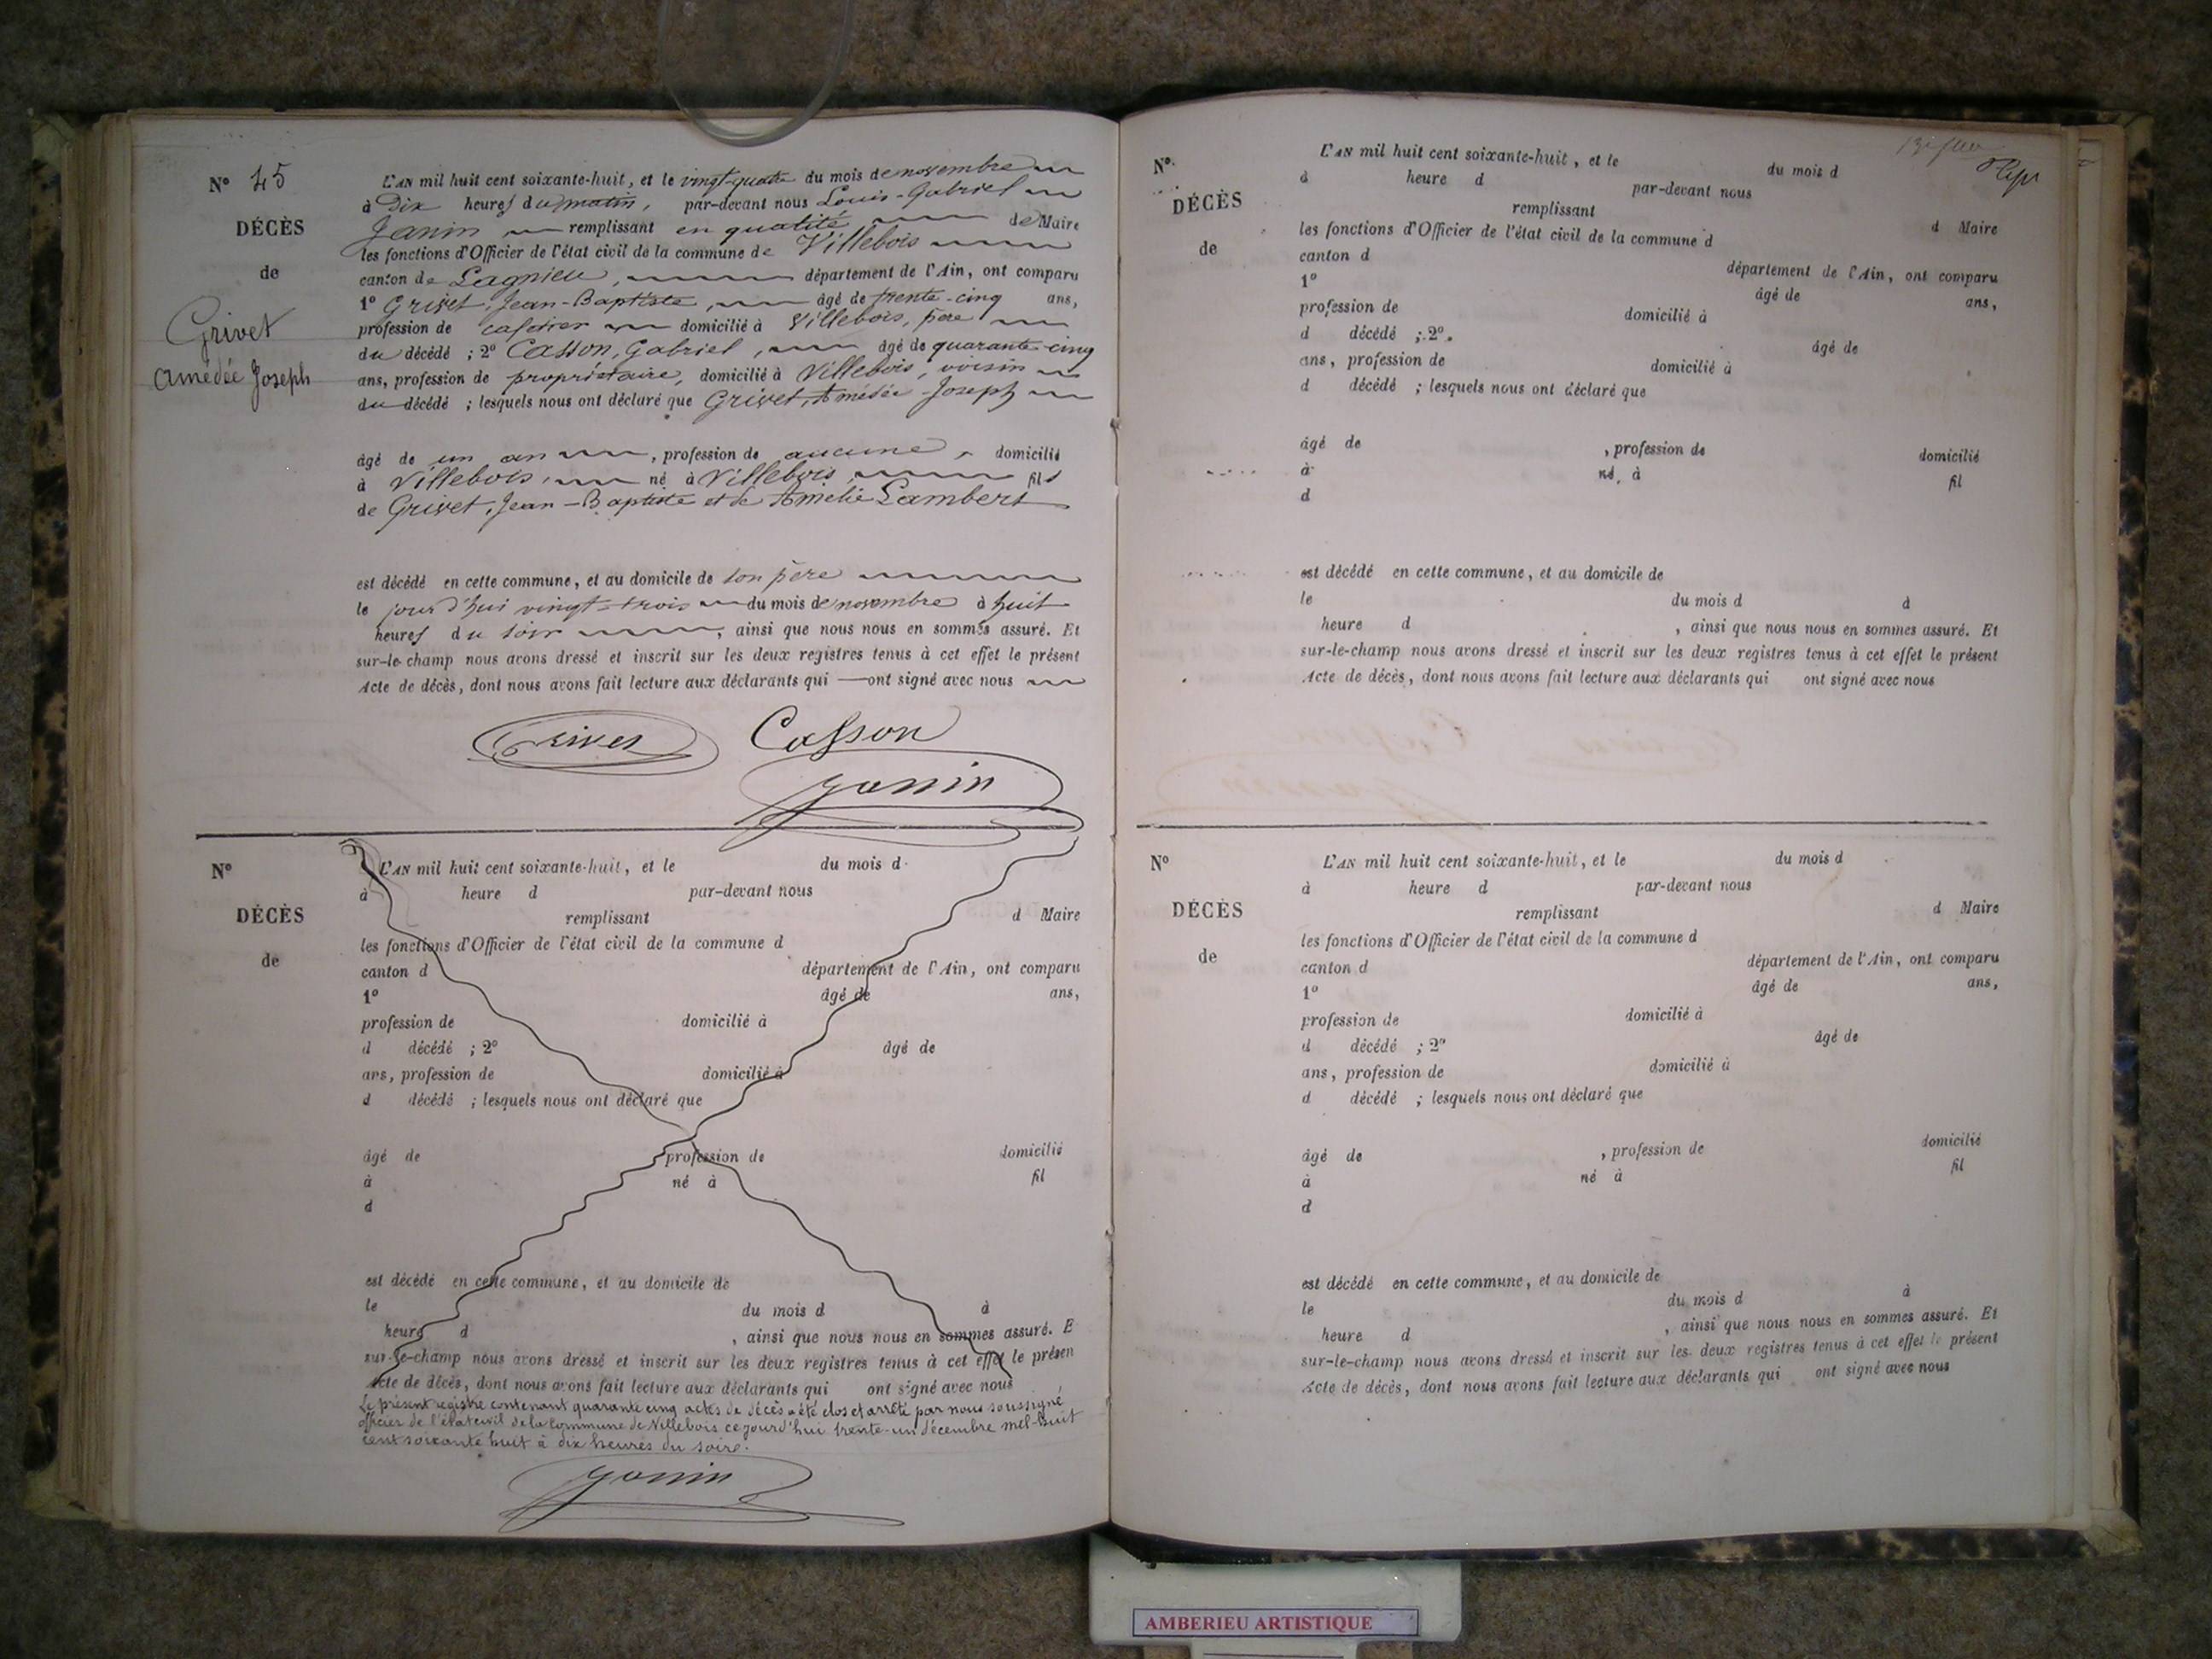 N° 45
DÉCÈS
de
Grivet
Amédée Joseph
L'AN mil huit cent soixante-huit, et le vingt-quatre du mois de novembre
à Dix heures du matin, par-devant nous Louis-Gabriel
Janin remplissant en qualité de Maire
les fonctions d'Officier de l'état civil de la commune de Villebois
canton de Lagnieu, département de l'Ain, ont comparu
1° Grivet, Jean-Baptiste, âgé de trente-cinq ans,
profession de cafetier domicilié à Villebois, père
du décédé ; 2° Casson, Gabriel, âgé de quarante-cinq
ans, profession de propriétaire, domicilié à Villebois, voisin
du décédé ; lesquels nous ont déclaré que Grivet, Amédée Joseph
âgé de un an, profession de aucune, domicilié
à Villebois, né à Villebois, fils
de Grivet, Jean-Baptiste et de Amélie Lambert
est décédé en cette commune, et au domicile de son père
le jour d'hui vingt-trois du mois de novembre à huit
heures du soir, ainsi que nous nous en sommes assuré. Et
sur-le-champ nous avons dressé et inscrit sur les deux registres tenus à cet effet le présent
Acte de décès, dont nous avons fait lecture aux déclarants qui ont signé avec nous
Grivet Casson
Janin
N°
DÉCÈS
de
L'AN mil huit cent soixante-huit, et le du mois d
à heure d par-devant nous
remplissant d Maire
les fonctions d'Officier de l'état civil de la commune d
canton d département de l'Ain, ont comparu
1° âgé de ans,
profession de domicilié à
d décédé ; 2° âgé de
ans, profession de domicilié à
d décédé ; lesquels nous ont déclaré que
âgé de profession de domicilié
à né à fil
d
est décédé en cette commune, et au domicile de
le du mois d à
heure d , ainsi que nous nous en sommes assuré. E
sur-le-champ nous avons dressé et inscrit sur les deux registres tenus à cet effet le présen
Acte de décès, dont nous avons fait lecture aux déclarants qui ont signé avec nous
Le présent registre contenant quarante cinq actes de décès a été clos et arrêté par nous soussigné
officier de l'état civil de la Commune de Villebois ce jourd'hui trente-un décembre mil-huit
cent soixante huit à dix heures du soir.
Janin
N°
DÉCÈS
de
L'AN mil huit cent soixante-huit, et le du mois d
à heure d par-devant nous
remplissant d Maire
les fonctions d'Officier de l'état civil de la commune d
canton d département de l'Ain, ont comparu
1° âgé de ans,
profession de domicilié à
d décédé ; 2° âgé de
ans, profession de domicilié à
d décédé ; lesquels nous ont déclaré que
âgé de , profession de domicilié
à né à fil
d
est décédé en cette commune, et au domicile de
le du mois d à
heure d , ainsi que nous nous en sommes assuré. Et
sur-le-champ nous avons dressé et inscrit sur les deux registres tenus à cet effet le présent
Acte de décès, dont nous avons fait lecture aux déclarants qui ont signé avec nous
N°
DÉCÈS
de
L'AN mil huit cent soixante-huit, et le du mois d
à heure d par-devant nous
remplissant d Maire
les fonctions d'Officier de l'état civil de la commune d
canton d département de l'Ain, ont comparu
1° âgé de ans,
profession de domicilié à
d décédé ; 2° âgé de
ans, profession de domicilié à
d décédé ; lesquels nous ont déclaré que
âgé de , profession de domicilié
à né à fil
d
est décédé en cette commune, et au domicile de
le du mois d à
heure d , ainsi que nous nous en sommes assuré. Et
sur-le-champ nous avons dressé et inscrit sur les deux registres tenus à cet effet le présent
Acte de décès, dont nous avons fait lecture aux déclarants qui ont signé avec nous
AMBERIEU ARTISTIQUE